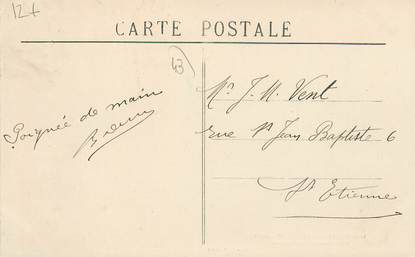 12+
CARTE POSTALE
43
Poignée de main
Mr J. M. Vent
rue St Jean Baptiste 6
St Etienne